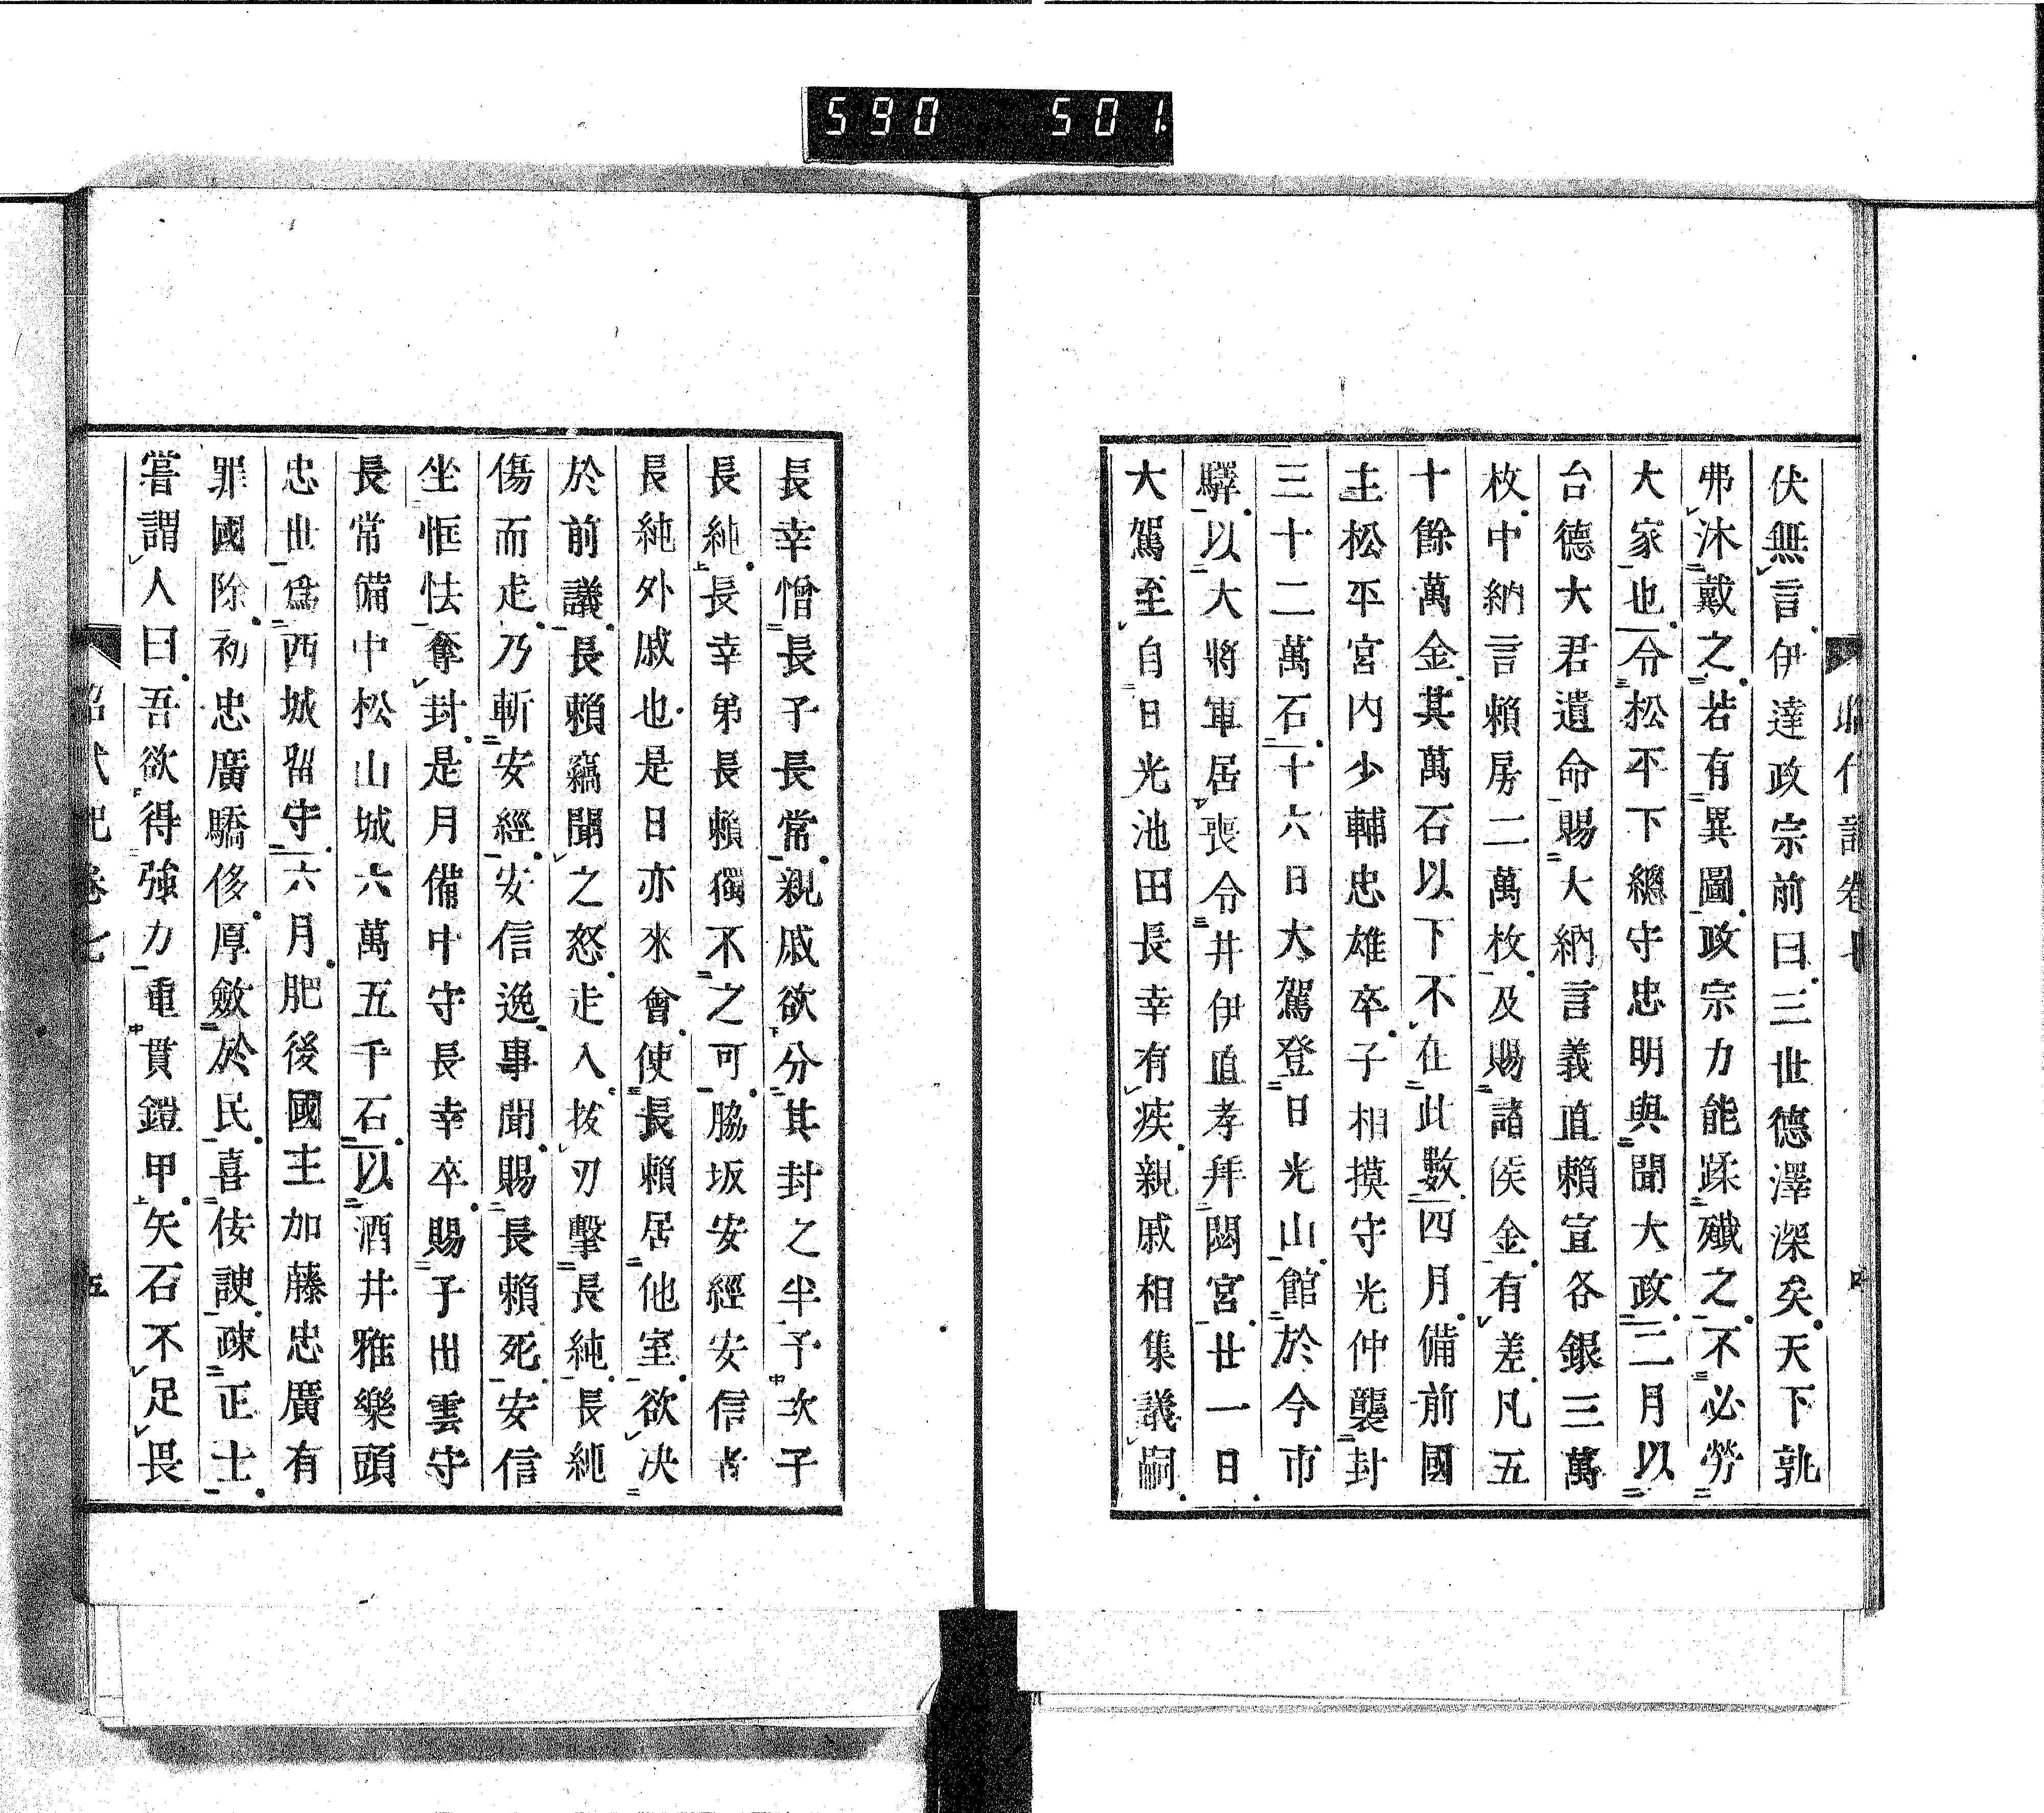 590 501
伏無言伊達政宗前曰三世德澤深矣天下孰
弗沐戴之若有異圖政宗力能蹂殱之不必勞
大家也令松平下總守忠明與聞大政二月以
台德大君遺命賜大納言義直賴宣各銀三萬
枚中納言賴房二萬枚及賜諸侯金有差凡五
十餘萬金其萬石以下不在此數四月備前國
主松平宮內少輔忠雄卒子相摸守光仲襲封
三十二萬石十六日大駕登日光山館於今市
驛以大將軍居喪令井伊直孝拜閟宮廿一日
大駕至自日光池田長幸有疾親戚相集議嗣
長幸憎長子長常親戚欲分其封之半予次子
長純長幸弟長賴獨不之可脇坂安經安信者
長純外戚也是日亦來會使長賴居他室欲决
於前議長賴竊聞之怒走入拔刃擊長純長純
傷而走乃斬安經安信逸事聞賜長賴死安信
坐恇怯奪封是月備中守長幸卒賜子出雲守
長常備中松山城六萬五千石以酒井雅樂頭
忠世爲西城留守六月肥後國主加藤忠廣有
罪國除初忠廣驕侈厚斂於民喜佞諛疎正士
嘗謂人曰吾欲得強力重貫鎧甲矢石不足畏
昭代記卷七
五